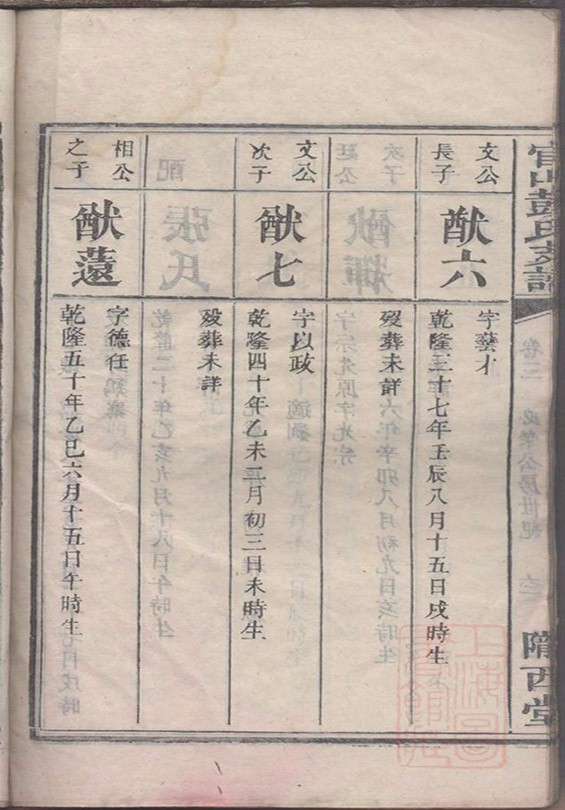 官山彭氏支譜
卷二
隴西堂
文公
長子
猷六
字藝才
乾隆三十七年壬辰八月十五日戌時生
歿葬未詳
文公
次子
猷七
字以政
乾隆四十年乙未二月初三日未時生
歿葬未詳
相公
之子
猷薳
字德任
乾隆五十年乙巳六月十五日午時生